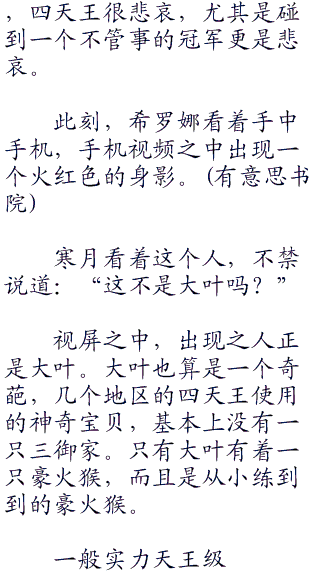 ，四天王很悲哀，尤其是碰
到一个不管事的冠军更是悲
哀。
此刻，希罗娜看着手中
手机，手机视频之中出现一
个火红色的身影。(有意思书
院)
寒月看着这个人，不禁
说道：“这不是大叶吗？”
视屏之中，出现之人正
是大叶。大叶也算是一个奇
葩，几个地区的四天王使用
的神奇宝贝，基本上没有一
只三御家。只有大叶有着一
只豪火猴，而且是从小练到
到的豪火猴。
一般实力天王级